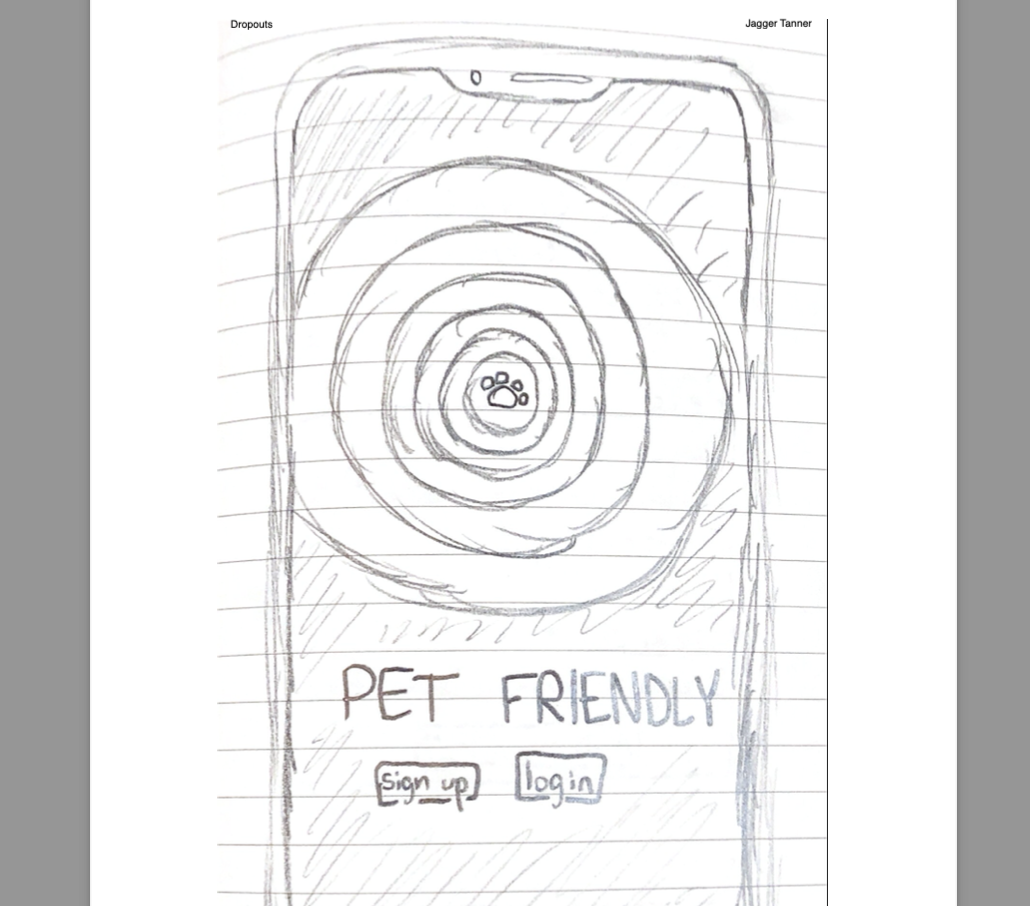 Dropouts Jagger Tanner
PET FRIENDLY
sign up log in